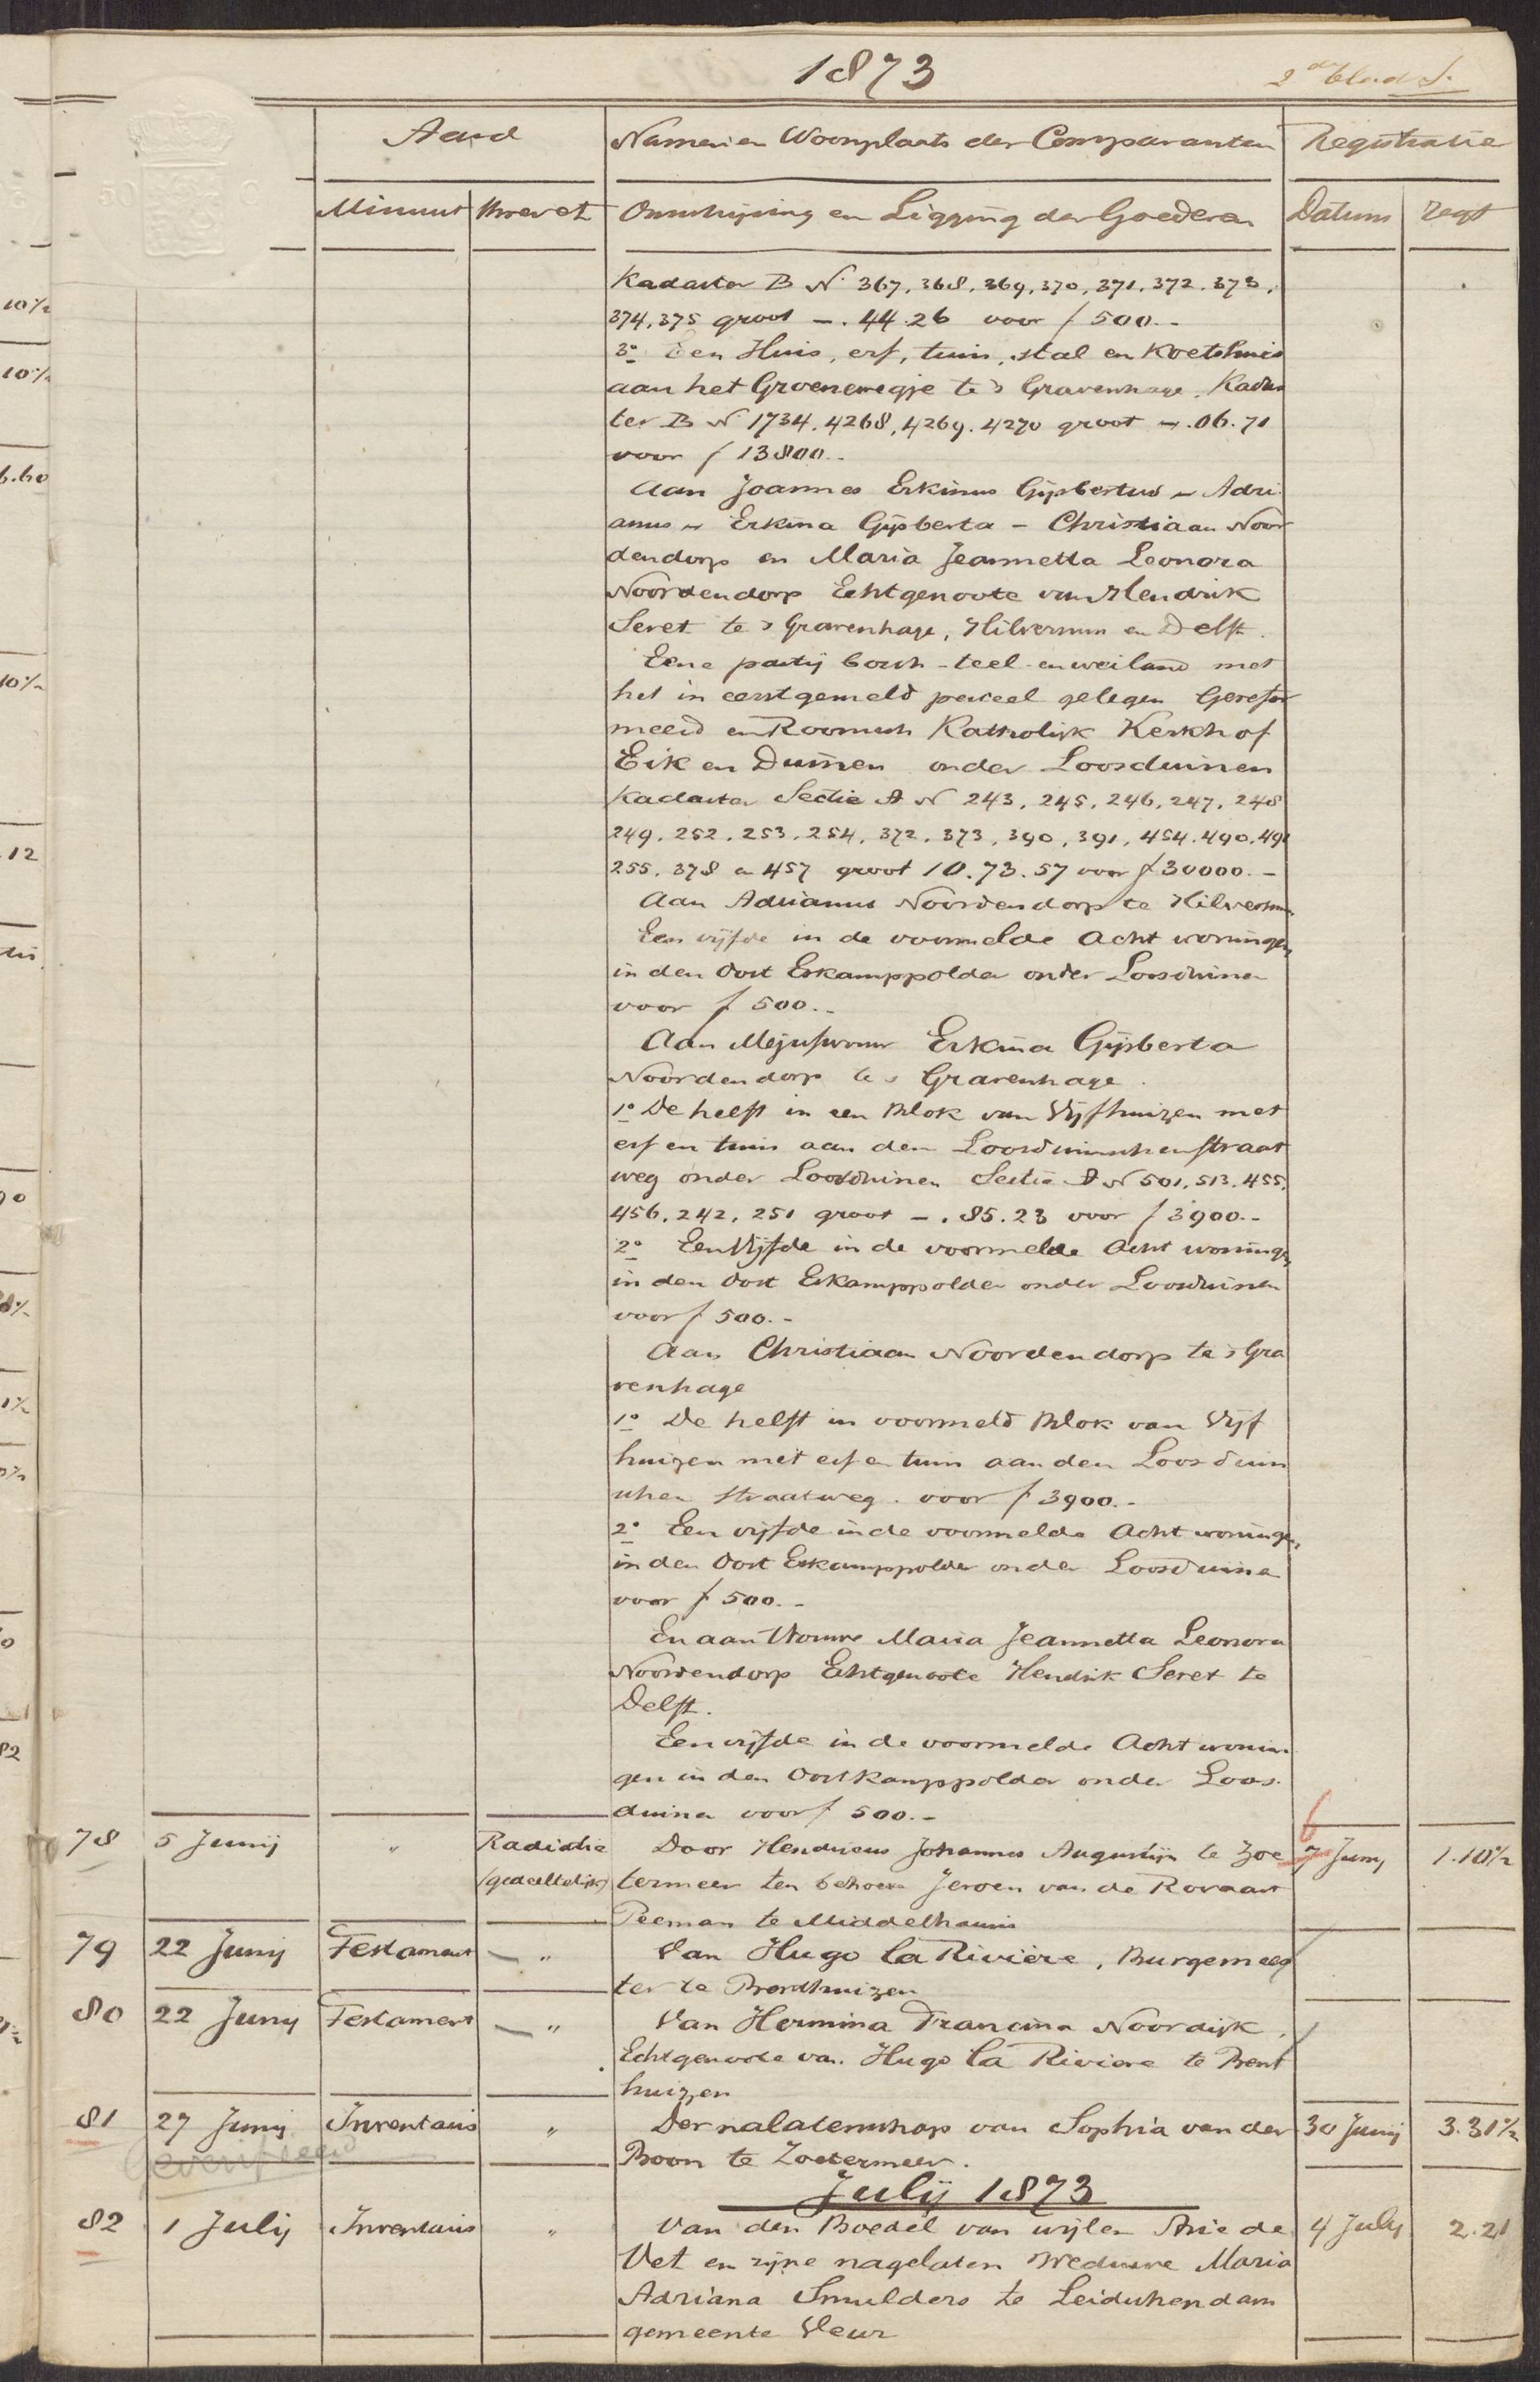 1873
2de blad S.
Aard
Namen en Woonplaats der Comparanten
Registratie
Minuut Brevet Omschrijving en Ligging der Goederen Datum regt
Kadaster B No 367, 368, 369, 370, 371, 372, 373,
374, 375 groot —. 44.26 voor f 500.-
3o Een Huis, erf, tuin, stal en Koetshuis
aan het Groenewegje te 's Gravenhage, Kadas
ter B No 1734, 4268, 4269, 4270 groot —. 06. 71
voor f 13800.-
Aan Joannes Erkinus Gijsbertus – Adri
anus – Erkina Gijsberta – Christiaan Noor
dendorp en Maria Jeannetta Leonora
Noordendorp Echtgenoote van Hendrik
Seret te 's Gravenhage, Hilversum en Delft.
Eene partij bosch-teel-en weiland met
het in eerstgemeld perceel gelegen Gerefor
meerd en Roomsch Katholijk Kerkhof
Eik en Duinen onder Loosduinen
Kadaster Sectie A No 243, 245, 246, 247, 248
249, 252, 253, 254, 372, 373, 390, 391, 454, 490, 491
255, 378 en 457 groot 10. 73. 57 voor f 30000.-
Aan Adrianus Noordendorp te Hilversum
Een vijfde in de voormelde Acht woningen
in den Oost Eskamppolder onder Loosduinen
voor f 500.-
Aan Mejufvrouw Erkina Gijsberta
Noordendorp te 's Gravenhage.
1o De helft in een Blok van Vijfhuizen met
erf en tuin aan den Loosduinschen straat
weg onder Loosduinen Sectie A No 501, 513, 455,
456, 242, 251 groot —. 85. 23 voor f 3900.-
2o Een Vijfde in de voormelde Acht woningen
in den Oost Eskamppolder onder Loosduinen
voor f 500.-
Aan Christiaan Noordendorp te 's Gra
venhage
1o De helft in voormeld Blok van Vijf
huizen met erf en tuin aan den Loosduin
schen straatweg voor f 3900.-
2o Een vijfde in de voormelde Acht woningen
in den Oost Eskamppolder onder Loosduinen
voor f 500.-
En aan Vrouwe Maria Jeannetta Leonora
Noordendorp Echtgenoote Hendrik Seret te
Delft.
Een vijfde in de voormelde Acht wonin
gen in den Oostkamppolder onder Loos
duinen voor f 500.-
6
78 5 Junij " Radiatie Door Hendricus Johannes Augustijn te Zoe 7 Junij 1.10½
(gedeeltelijk) termeer ten behoeve Jeroen van de Rovaart
Peeman te Middelharnis
79 22 Junij Testament — " Van Hugo la Rivière, Burgemees
ter te Benthuizen
80 22 Junij Testament — " Van Hermina Francina Noordijk,
Echtgenoote van Hugo la Riviere te Bent
huizen
81 27 Junij Inventaris " Der nalatenschap van Sophia van der 30 Junij 3.31½
Geverifieerd
Boon te Zoetermeer.
Julij 1873
82 1 Julij Inventaris " Van den Boedel van wijlen Arie de 4 July 2.21
Vet en zijne nagelaten Weduwe Maria
Adriana Smulders te Leidschendam
gemeente Veur